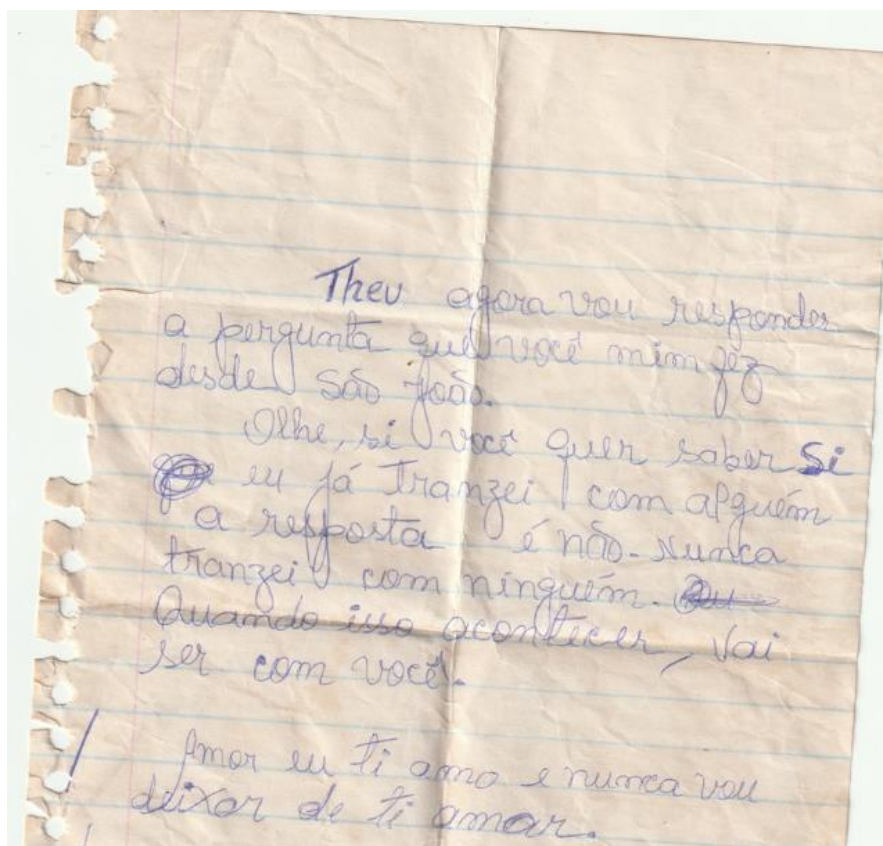 Theu agora vou responder
a pergunta que você mim fez
desde São João.
Olhe, si você quer saber si
eu já Tranzei com alguém
a resposta é não. Nunca
tranzei com ninguém.
Quando isso acontecer, Vai
ser com você.
Amor eu ti amo e nunca vou
deixar de ti amar.